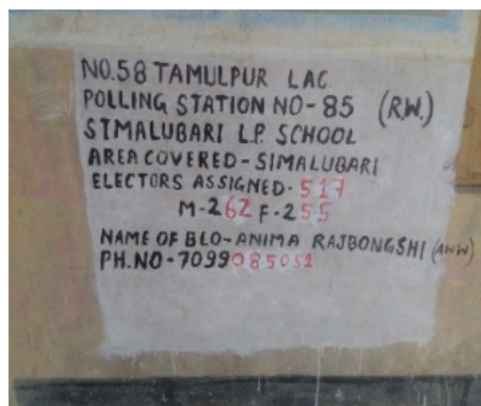 NO.58 TAMULPUR LAC
POLLING STATION NO-85 (R.W.)
SIMALUBARI L.P. SCHOOL
AREA COVERED-SIMALUBARI
ELECTORS ASSIGNED-517
M-262 F-255
NAME OF BLO-ANIMA RAJBONGSHI (AWW)
PH.NO-7099085051